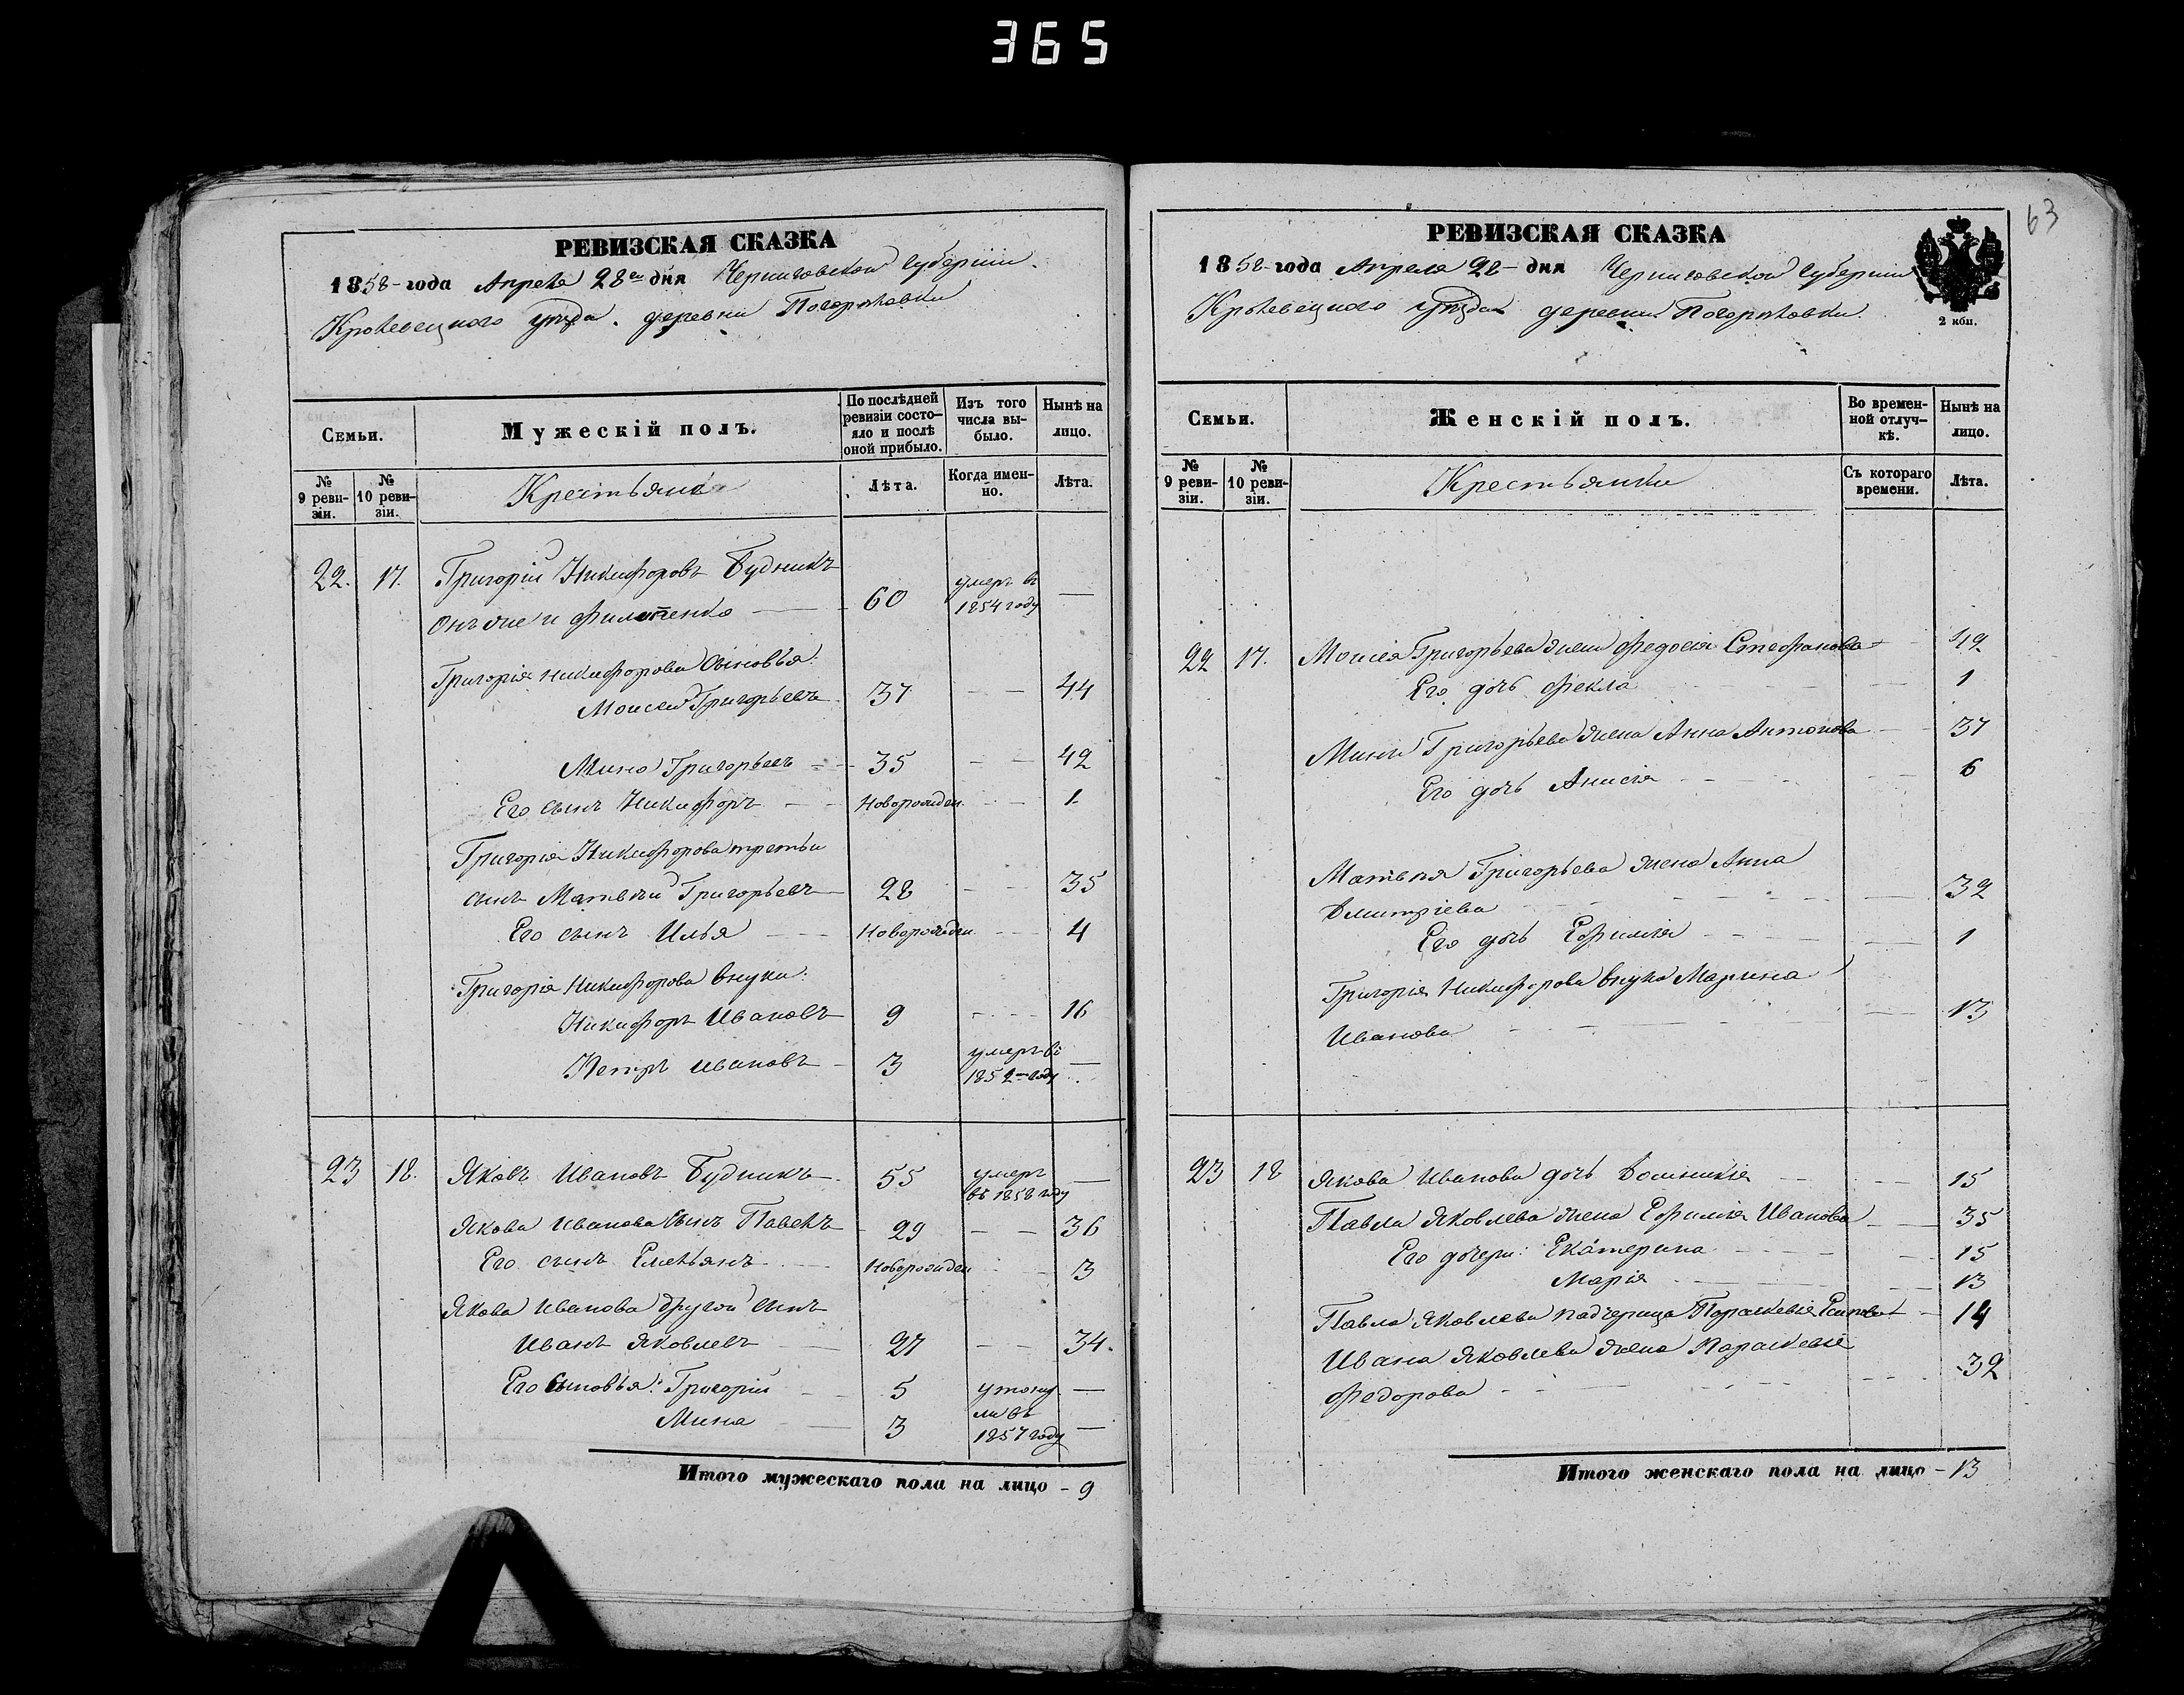 365
РЕВИЗСКАЯ СКАЗКА
1858 года Апреля 28го дня Черниговской Губернии
Кролевецкого уѣзда деревни Погорѣловки
Семьи.
Мужескій полъ.
По послѣдней ревизіи состо-
яло и послѣ оной прибыло.
Изъ того числа вы-
было.
Нынѣ на лицо.
№ 9 реви-
зіи.
№ 10 реви-
зіи.
Крестьяне
Лѣта.
Когда имен-
но.
Лѣта.
22. 17. Григорій Никифоровъ Будникъ
онъ же и 60 умеръ въ 1854 году —
Григорія Никифорова сыновья:
Моисей Григорьевъ 37 — — 44
Мина Григорьевъ 35 — — 42
Его сынъ Никифоръ Новорожден. 1
Григорія Никифорова третьи
сынъ Матвѣй Григорьевъ 28 — — 35
Его сынъ Илья Новорожден. 4
Григорія Никифорова внуки:
Никифоръ Ивановъ 9 — — 16
Петръ Ивановъ 3 умеръ въ 1852 году —
23 18. Яковъ Ивановъ Будникъ 55 умеръ въ 1858 году —
Якова Иванова сынъ Павелъ 29 — — 36
Его сынъ Емельянъ Новорожден 3
Якова Иванова другой сынъ
Иванъ Яковлевъ 27 — — 34.
Его сыновья: Григорій 5 утону-
Мина 3 ли въ 1857 году —
Итого мужескаго пола на лицо – 9
63
РЕВИЗСКАЯ СКАЗКА
1858 года Апреля 28 дня Черниговской Губернии
Кролевецкого уѣзда деревни Погорѣловки.
2 коп.
Семьи.
Женскій полъ.
Во времен-
ной отлуч-
кѣ.
Нынѣ на лицо.
№ 9 реви-
зіи.
№ 10 реви-
зіи.
Крестьянки
Съ котораго времени.
Лѣта.
22 17. Моисея Григорьева жена Федосія Стефанова 42
Его дочь Фекла 1
Мины Григорьева жена Анна Антонова 37
Его дочь Анисія 6
Матвѣя Григорьева жена Анна
Дмитріева 32
Его дочь Ефимія 1
Григорія Никифорова внука Марина
Иванова 13
23 18 Якова Иванова дочь Домникія 15
Павла Яковлева жена Ефимія Иванова 35
Его дочери: Екатерина 15
Марія 13
Павла Яковлева падчерица Параскевія 14
Ивана Яковлева жена Параскевія
Федорова 32
Итого женскаго пола на лицо – 13